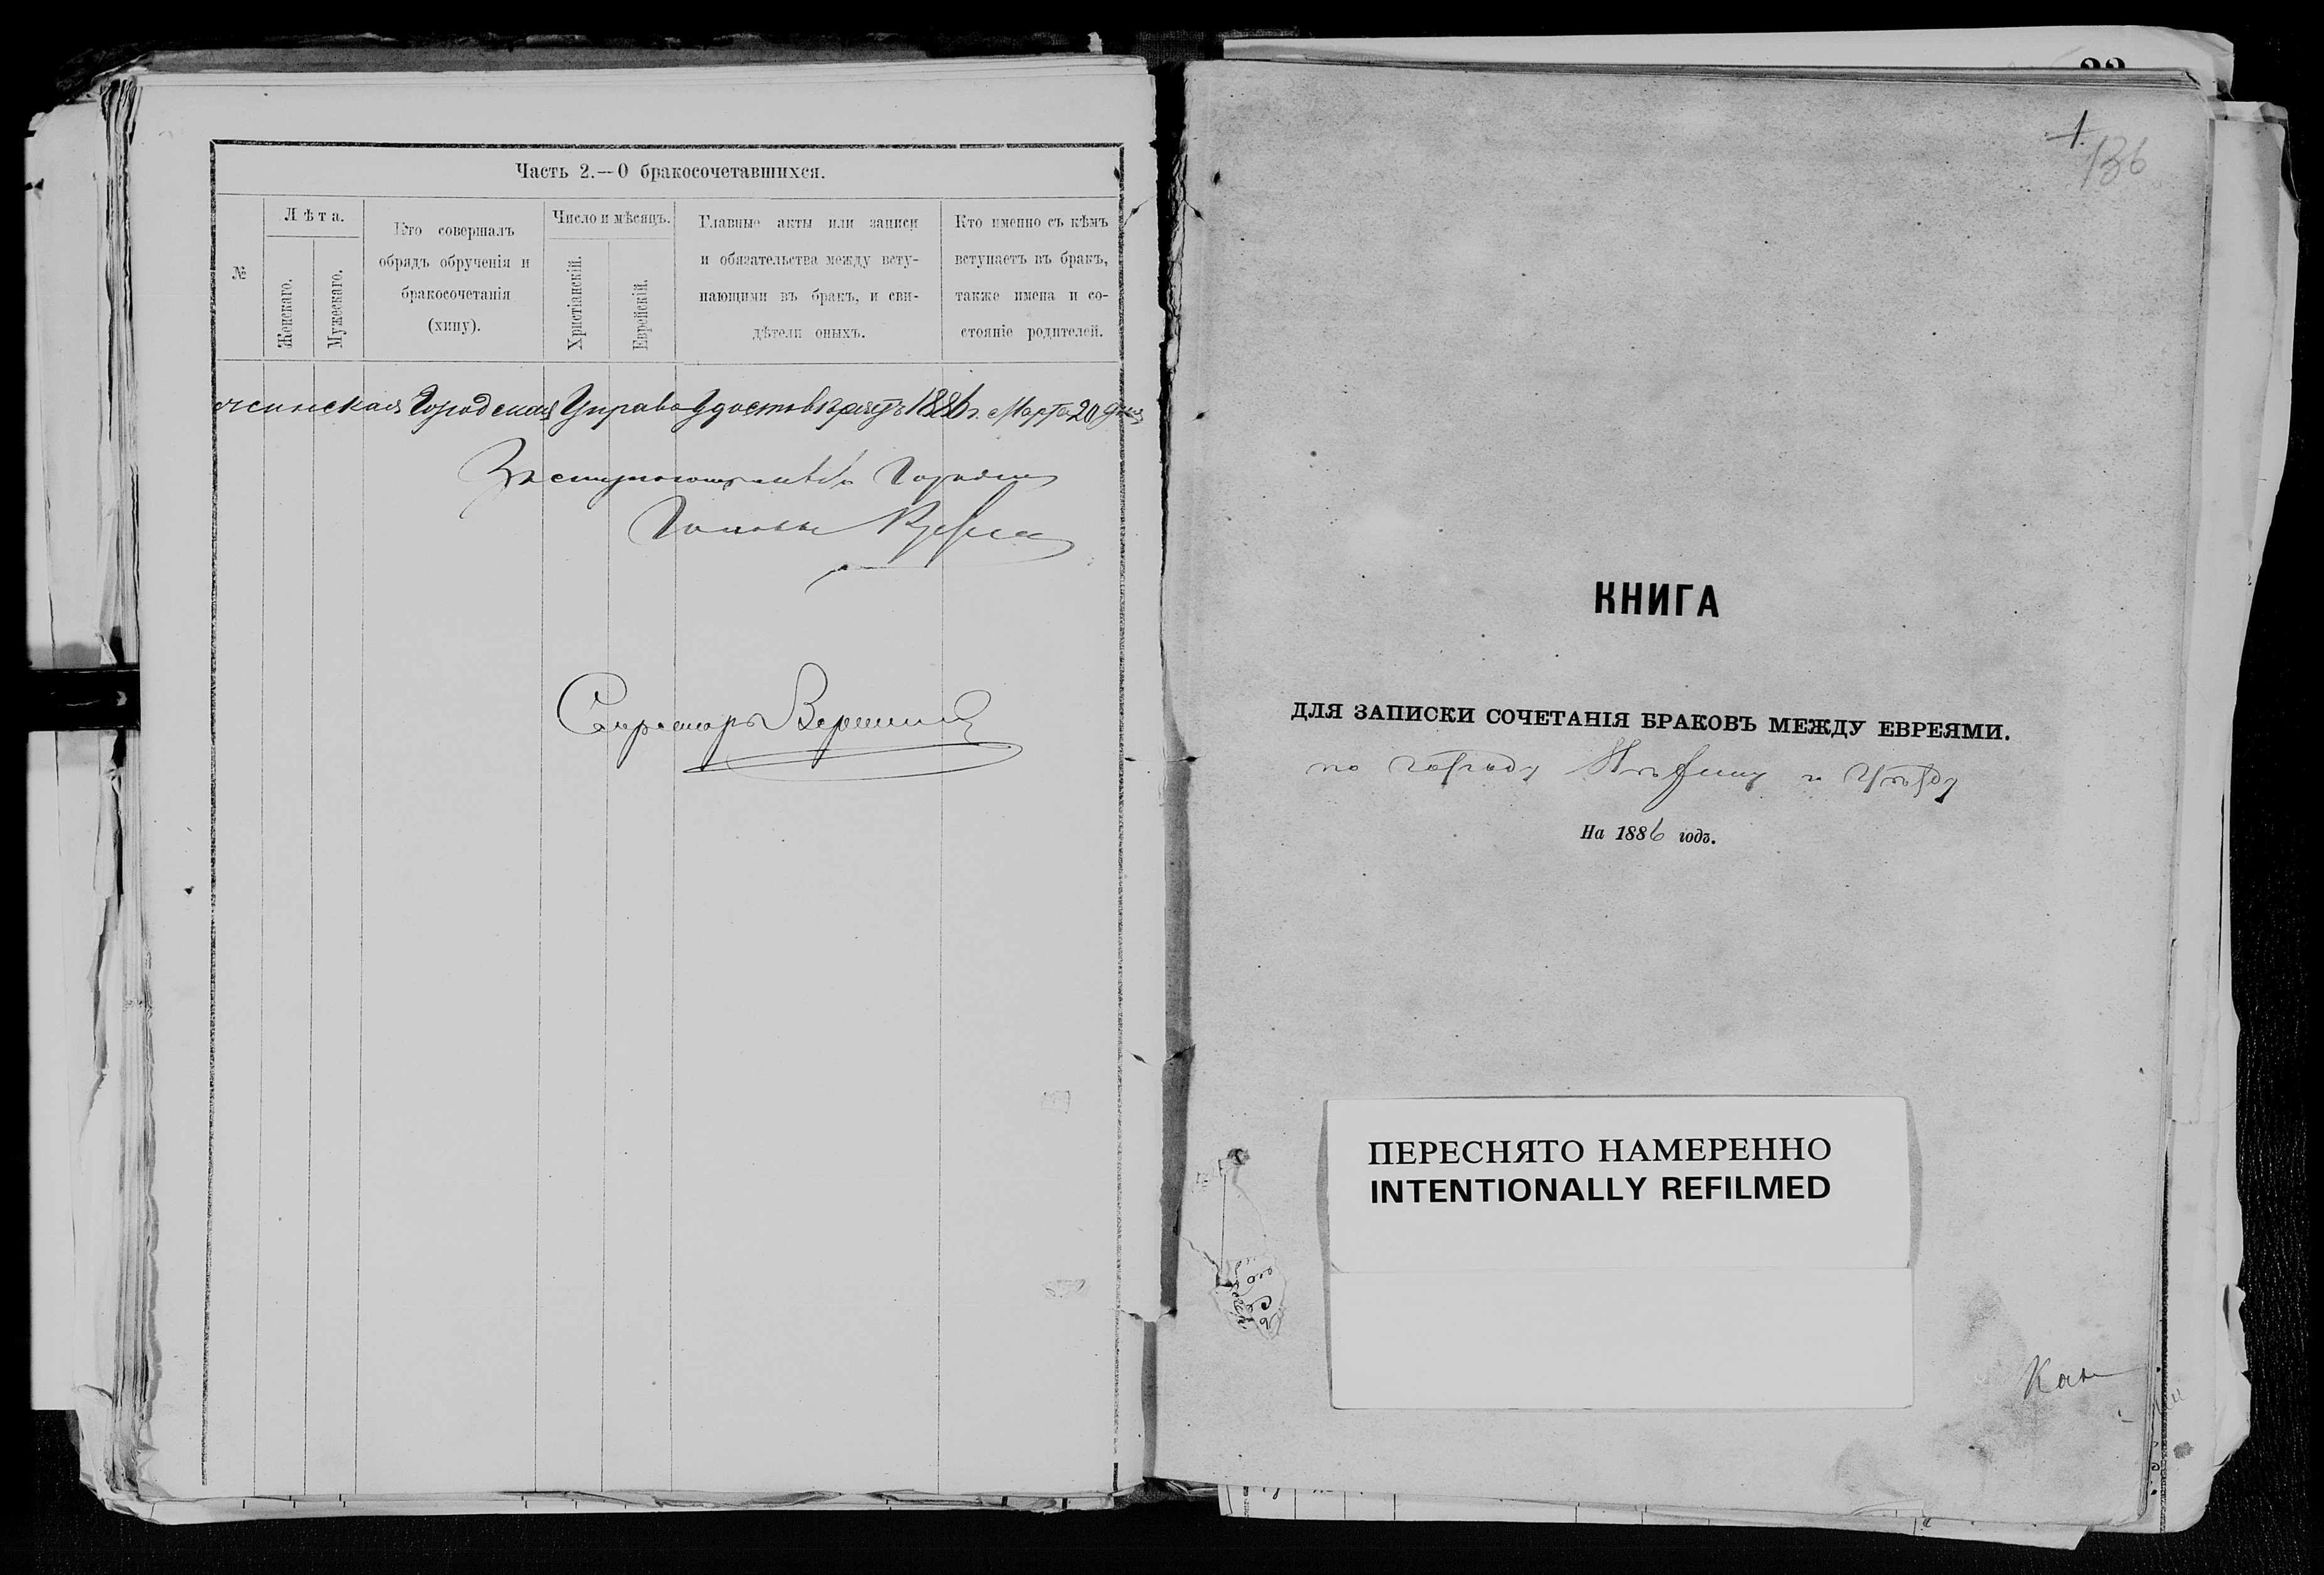 Часть 2.—О бракосочетавшихся.
№
Лѣта.
Женскаго.
Мужескаго.
Кто совершалъ
обрядъ обрученія и
бракосочетанія
(хупу).
Число и мѣсяцъ.
Христіанскій.
Еврейскій.
Главные акты или записи
и обязательства между всту-
пающими въ бракъ, и сви-
дѣтели оныхъ.
Кто именно съ кѣмъ
вступаетъ въ бракъ,
также имена и со-
стояніе родителей.
жинская Городская Управа удостовѣряетъ 1886 г. Марта 20 дня
Заступающій мѣсто Городского
Головы
Секретарь
1.
136
КНИГА
ДЛЯ ЗАПИСКИ СОЧЕТАНІЯ БРАКОВЪ МЕЖДУ ЕВРЕЯМИ.
по городу Нѣжину и Уѣзду
На 1886 годъ.
ПЕРЕСНЯТО НАМЕРЕННО
INTENTIONALLY REFILMED